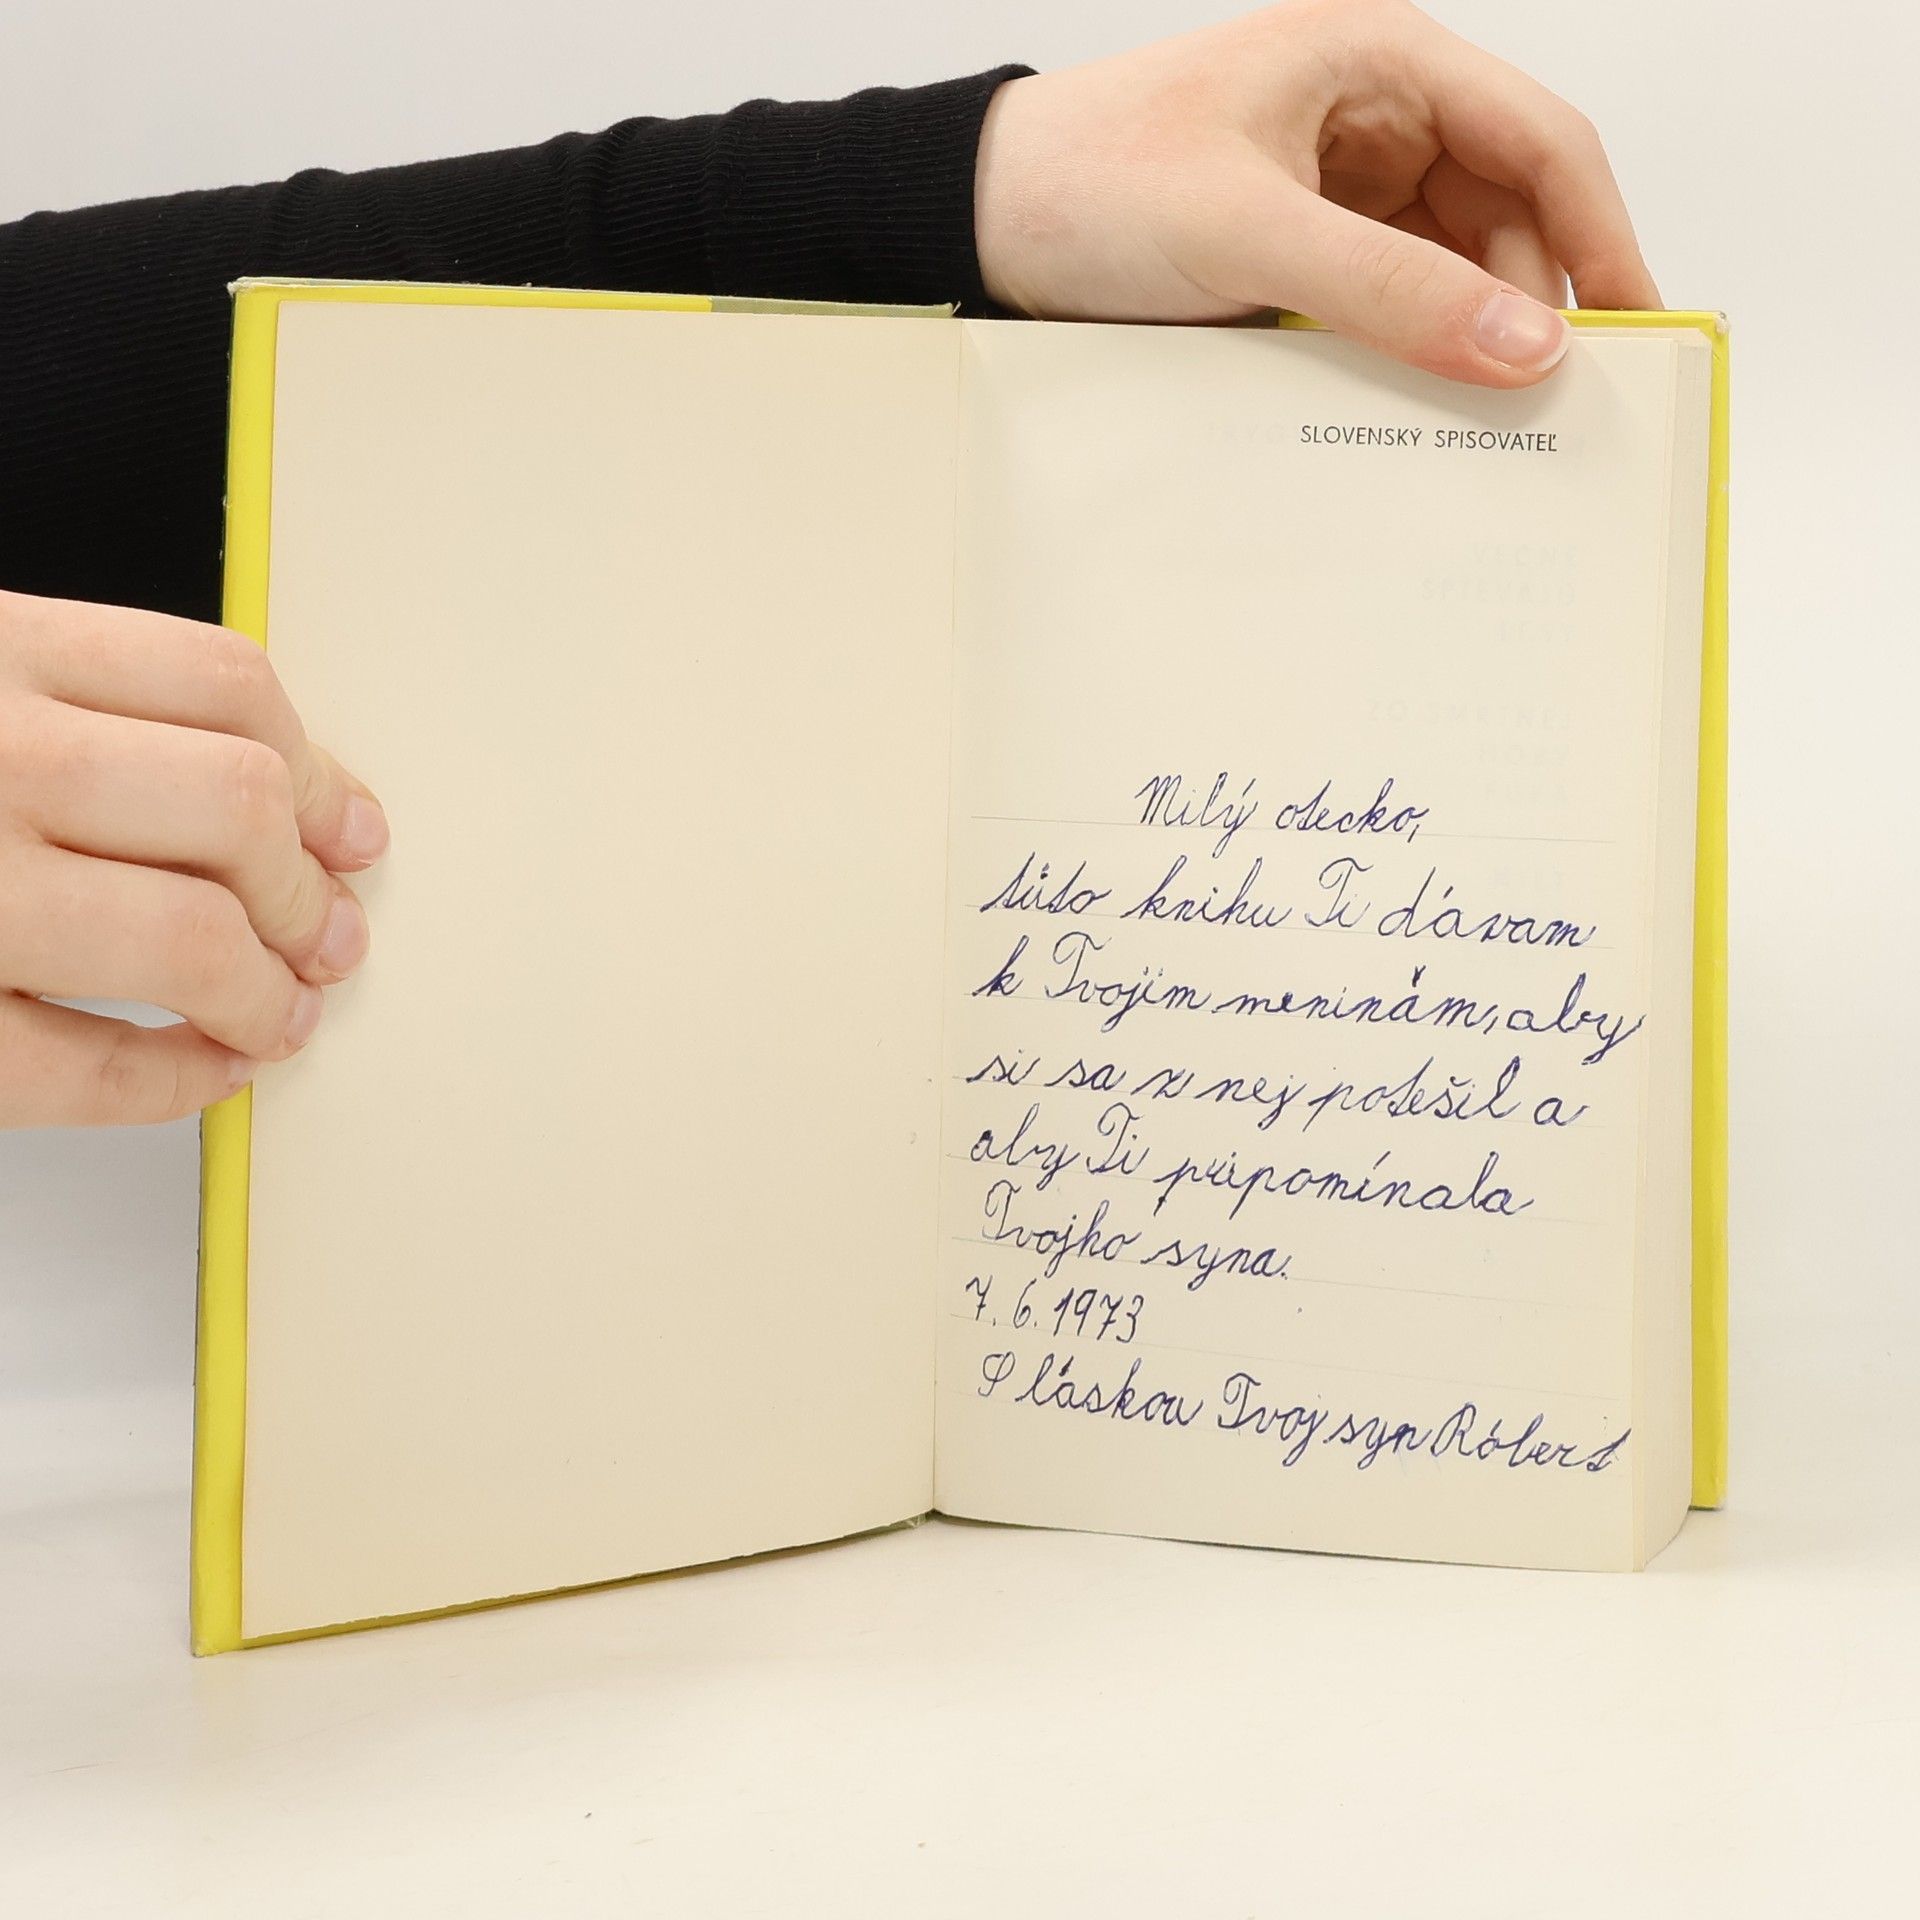 SLOVENSKÝ SPISOVATEĽ
VEČNE
SPIEVAJÚ
LESY
Milý otecko,
túto knihu Ti ďávam
k Tvojim meninám, aby
si sa z nej potešil a
aby Ti pripomínala
Tvojho syna.
7. 6. 1973
S láskou Tvoj syn Róbert